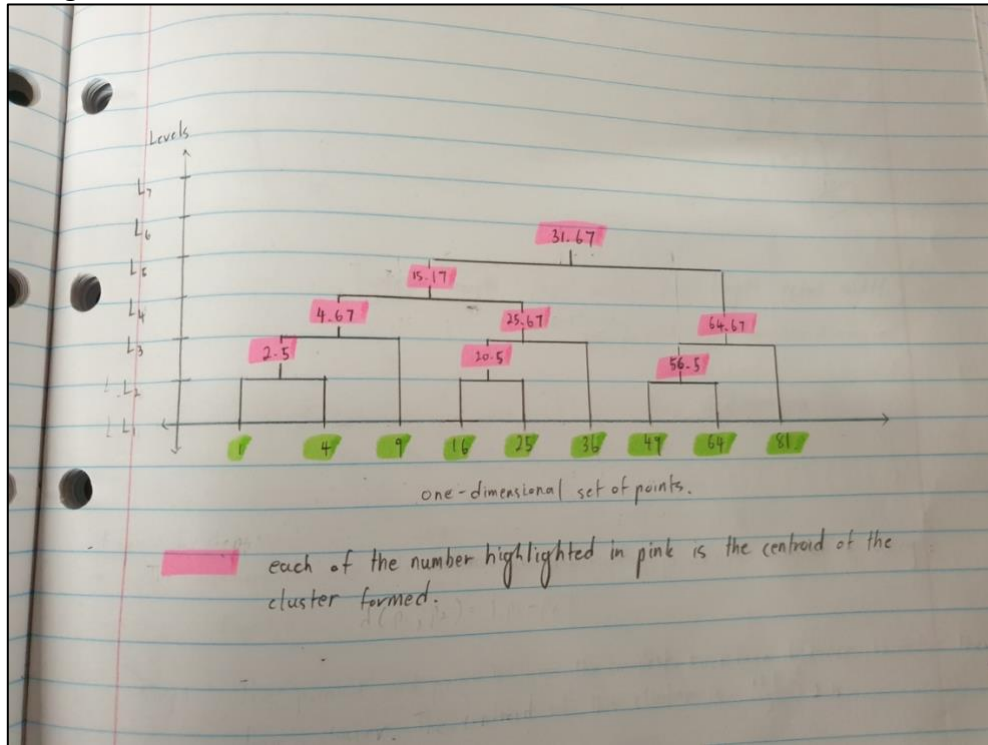 Levels
L7
L6
31.67
L5
15.17
L4
4.67 25.67 64.67
L3
2.5 20.5 56.5
L2
L1
1 4 9 16 25 36 49 64 81
one-dimensional set of points.
each of the number highlighted in pink is the centroid of the
cluster formed.